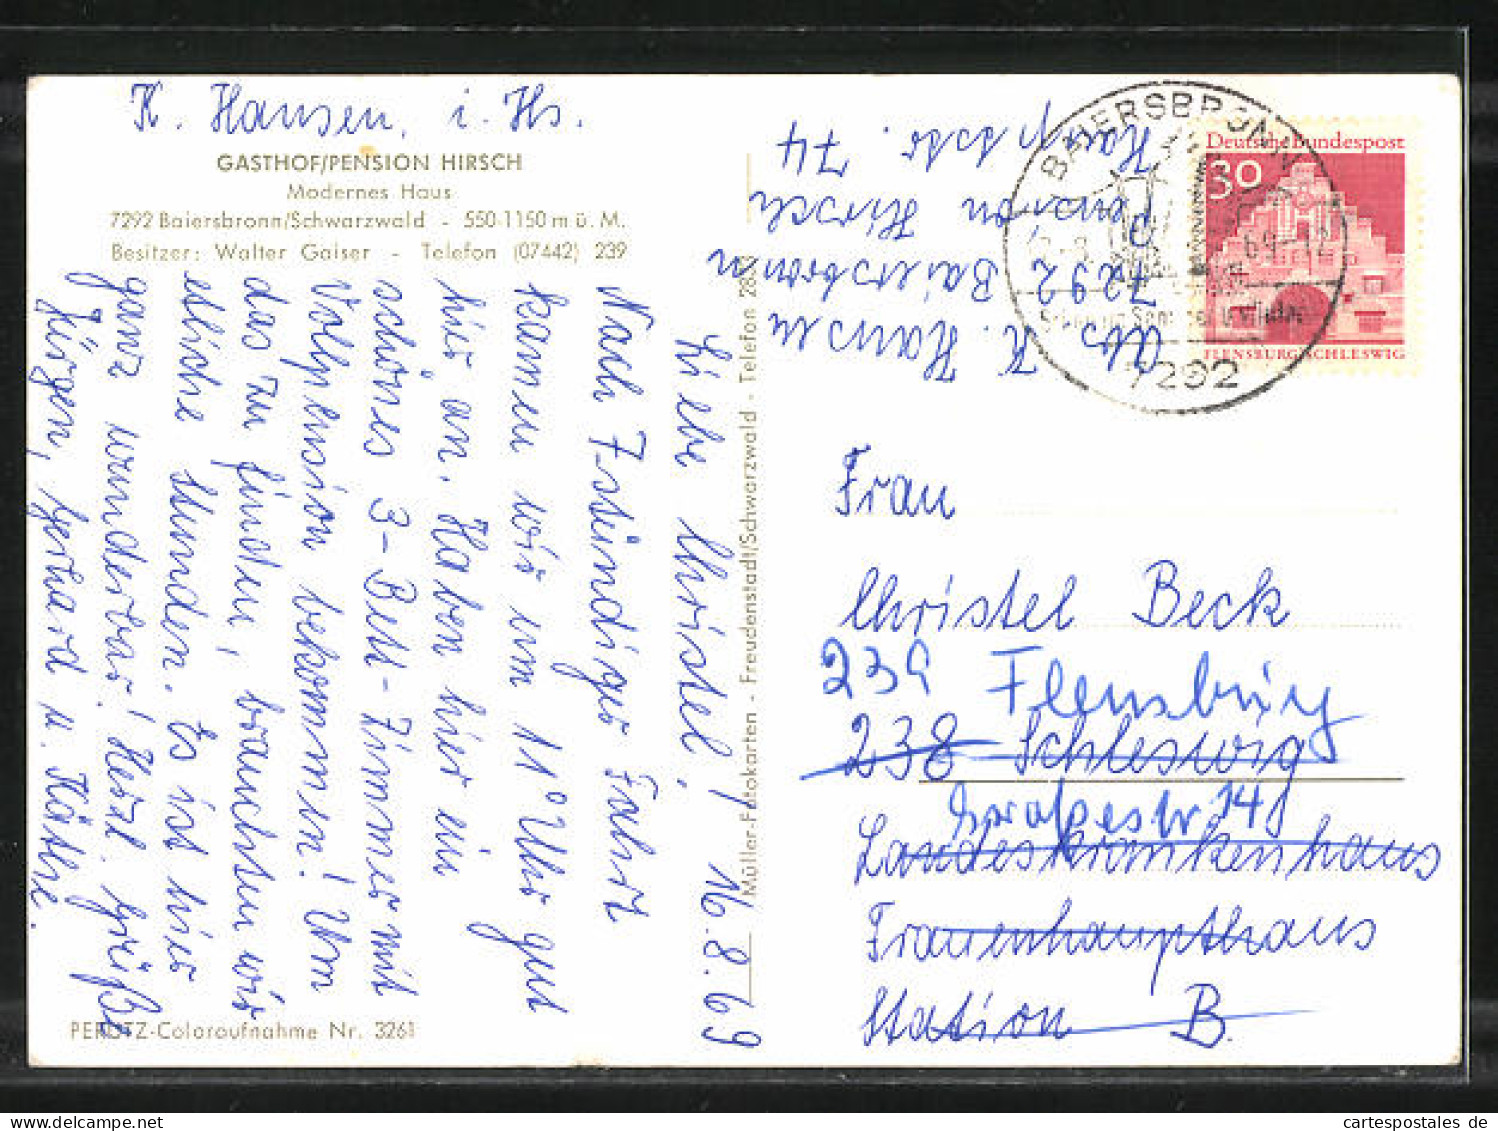 K. Hansen, i. Hs.
GASTHOF/PENSION HIRSCH
Modernes Haus
7292 Baiersbronn/Schwarzwald - 550-1150 m ü. M.
Besitzer: Walter Gaiser - Telefon (07442) 239
Liebe Christel, 16.8.69
Nach 7-stündiger Fahrt
kamen wir um 11° Uhr gut
hier an. Haben hier ein
schönes 3-Bett-Zimmer mit
Vollpension bekommen! Um
das zu finden, brauchten wir
etliche Stunden. Es ist hier
ganz wunderbar! Herzl. Grüße
Jürgen, Gerhard u. Käthe.
PERUTZ-Coloraufnahme Nr. 3261
Müller-Fotokarten - Freudenstadt/Schwarzwald - Telefon
Abs. K. Hansen
7292 Baiersbronn
Pension Hirsch
Hauptstr. 74
BAIERSBRONN
69-12
7292
Deutsche Bundespost
30
FLENSBURG/SCHLESWIG
Frau
Christel Beck
239 Flensburg
238 Schleswig
Großestr. 14
Landeskrankenhaus
Frauenhaupthaus
Station B.
cartespostales de